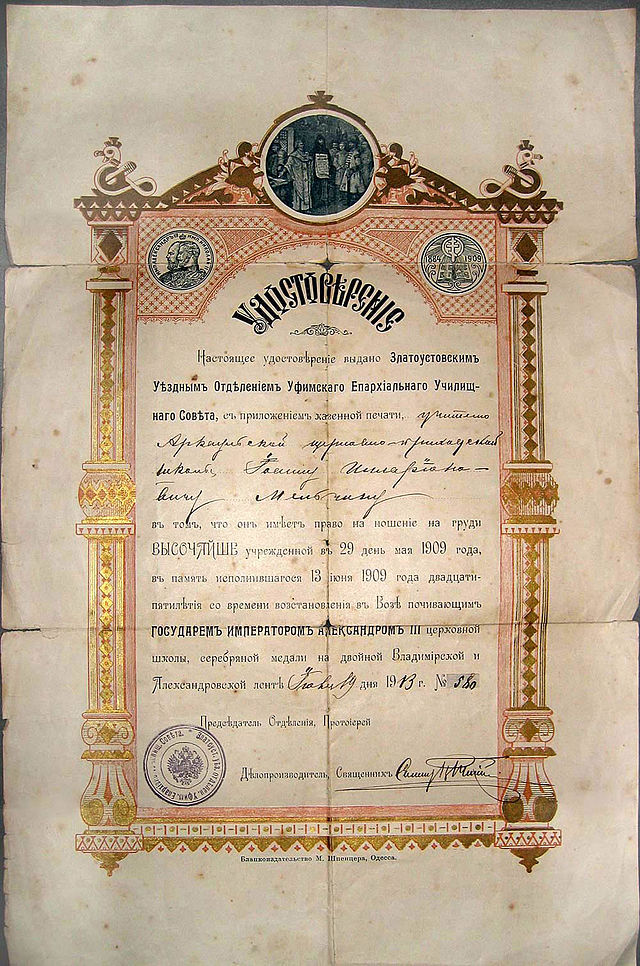 1884 1909
УДОСТОВѢРЕНІЕ
Настоящее удостовѣреніе выдано Златоустовскимъ
Уѣзднымъ Отдѣленіемъ Уфимскаго Епархіальнаго Училищ-
наго Совѣта, съ приложеніемъ казенной печати, учителю
Аркаульской церковно-приходской
школы Іоанну Илларіоно-
вичу Мельчину
въ томъ, что онъ имѣетъ право на ношеніе на груди
ВЫСОЧАЙШЕ учрежденной въ 29 день мая 1909 года,
въ память исполнившагося 13 іюня 1909 года двадцати-
пятилѣтія со времени возстановленія въ Бозѣ почивающимъ
ГОСУДАРЕМЪ ИМПЕРАТОРОМЪ АЛЕКСАНДРОМЪ III церковной
школы, серебряной медали на двойной Владимірской и
Александровской лентѣ дня 1913 г. № 580
Предсѣдатель Отдѣленія, Протоіерей
Дѣлопроизводитель, Священникъ
Бланкоиздательство М. Шпенцера, Одесса.